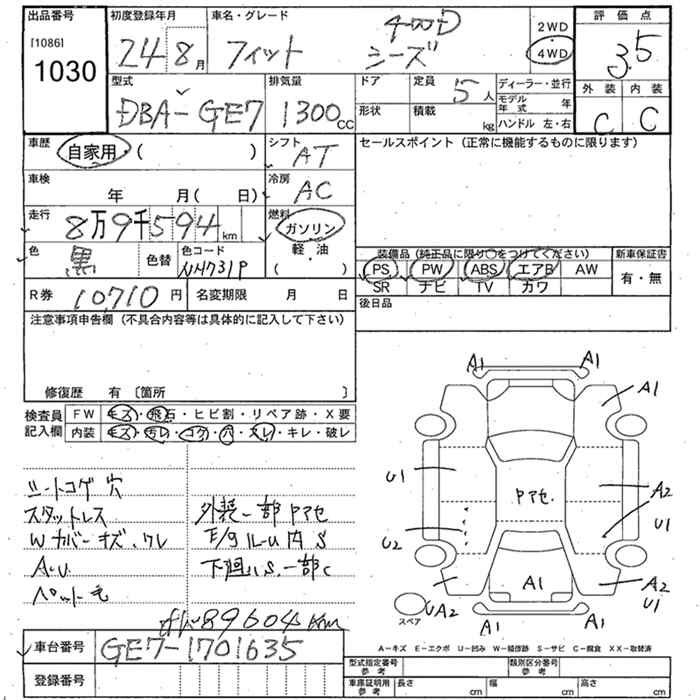 出品番号 初度登録年月 車名・グレード 評価点
[1086]
1030
24 8月 フィット シーズ 2WD 4WD 3.5
型式 排気量 ドア 定員 ディーラー・並行 外装 内装
DBA-GE7 1300CC 5人 モデル年式 年 C C
形状 積載 kg ハンドル 左・右
車歴 自家用 ( ) シフト AT セールスポイント (正常に機能するものに限ります)
車検 年 月( 日) 冷房 AC
走行 8万9千594km 燃料 ガソリン
色 黒 色替 色コード NH731P 軽・油 ( )
装備品 (純正品に限り○をつけてください) 新車保証書
PS PW ABS エアB AW 有・無
SR ナビ TV カワ
R券 10,710円 名変期限 月 日 後日品
注意事項申告欄 (不具合内容等は具体的に記入して下さい)
修復歴 有 〔箇所 〕
検査員 FW キズ・飛石・ヒビ割・リペア跡・X要
記入欄 内装 キズ・汚レ・コゲ・穴・スレ・キレ・破レ
シートコゲ穴
スタットレス 外装一部Pアセ
Wカバーキズ、ワレ F/gルーム内S
A.U. 下廻りS.一部C
ペット毛
89604km
A1 A1
A1
U1 Pアセ. A2
U1
U2
A1 A2
UA2 U1
スペア A1 A1
車台番号 GE7-1701635
登録番号
A-キズ E-エクボ U-凹み W-補修跡 S-サビ C-腐食 XX-取替済
型式指定番号 参考 類別区分番号 参考
車庫証明用 参考 長さ cm 幅 cm 高さ cm